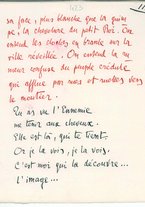 sa face, plus blanche que la guim
pe, la chevelure du petit Roi. On
entend les cloches en branle sur la
ville réveillée. On entend la ru
meur confuse du peuple crédule
qui afflue par mes et moles vers
le moutier.
Tu as vu l'Ennemie
me tenir aux cheveux.
Elle est là, qui te tient.
Or je la vois, je la vois.
C'est moi qui la découvre...
L'image...